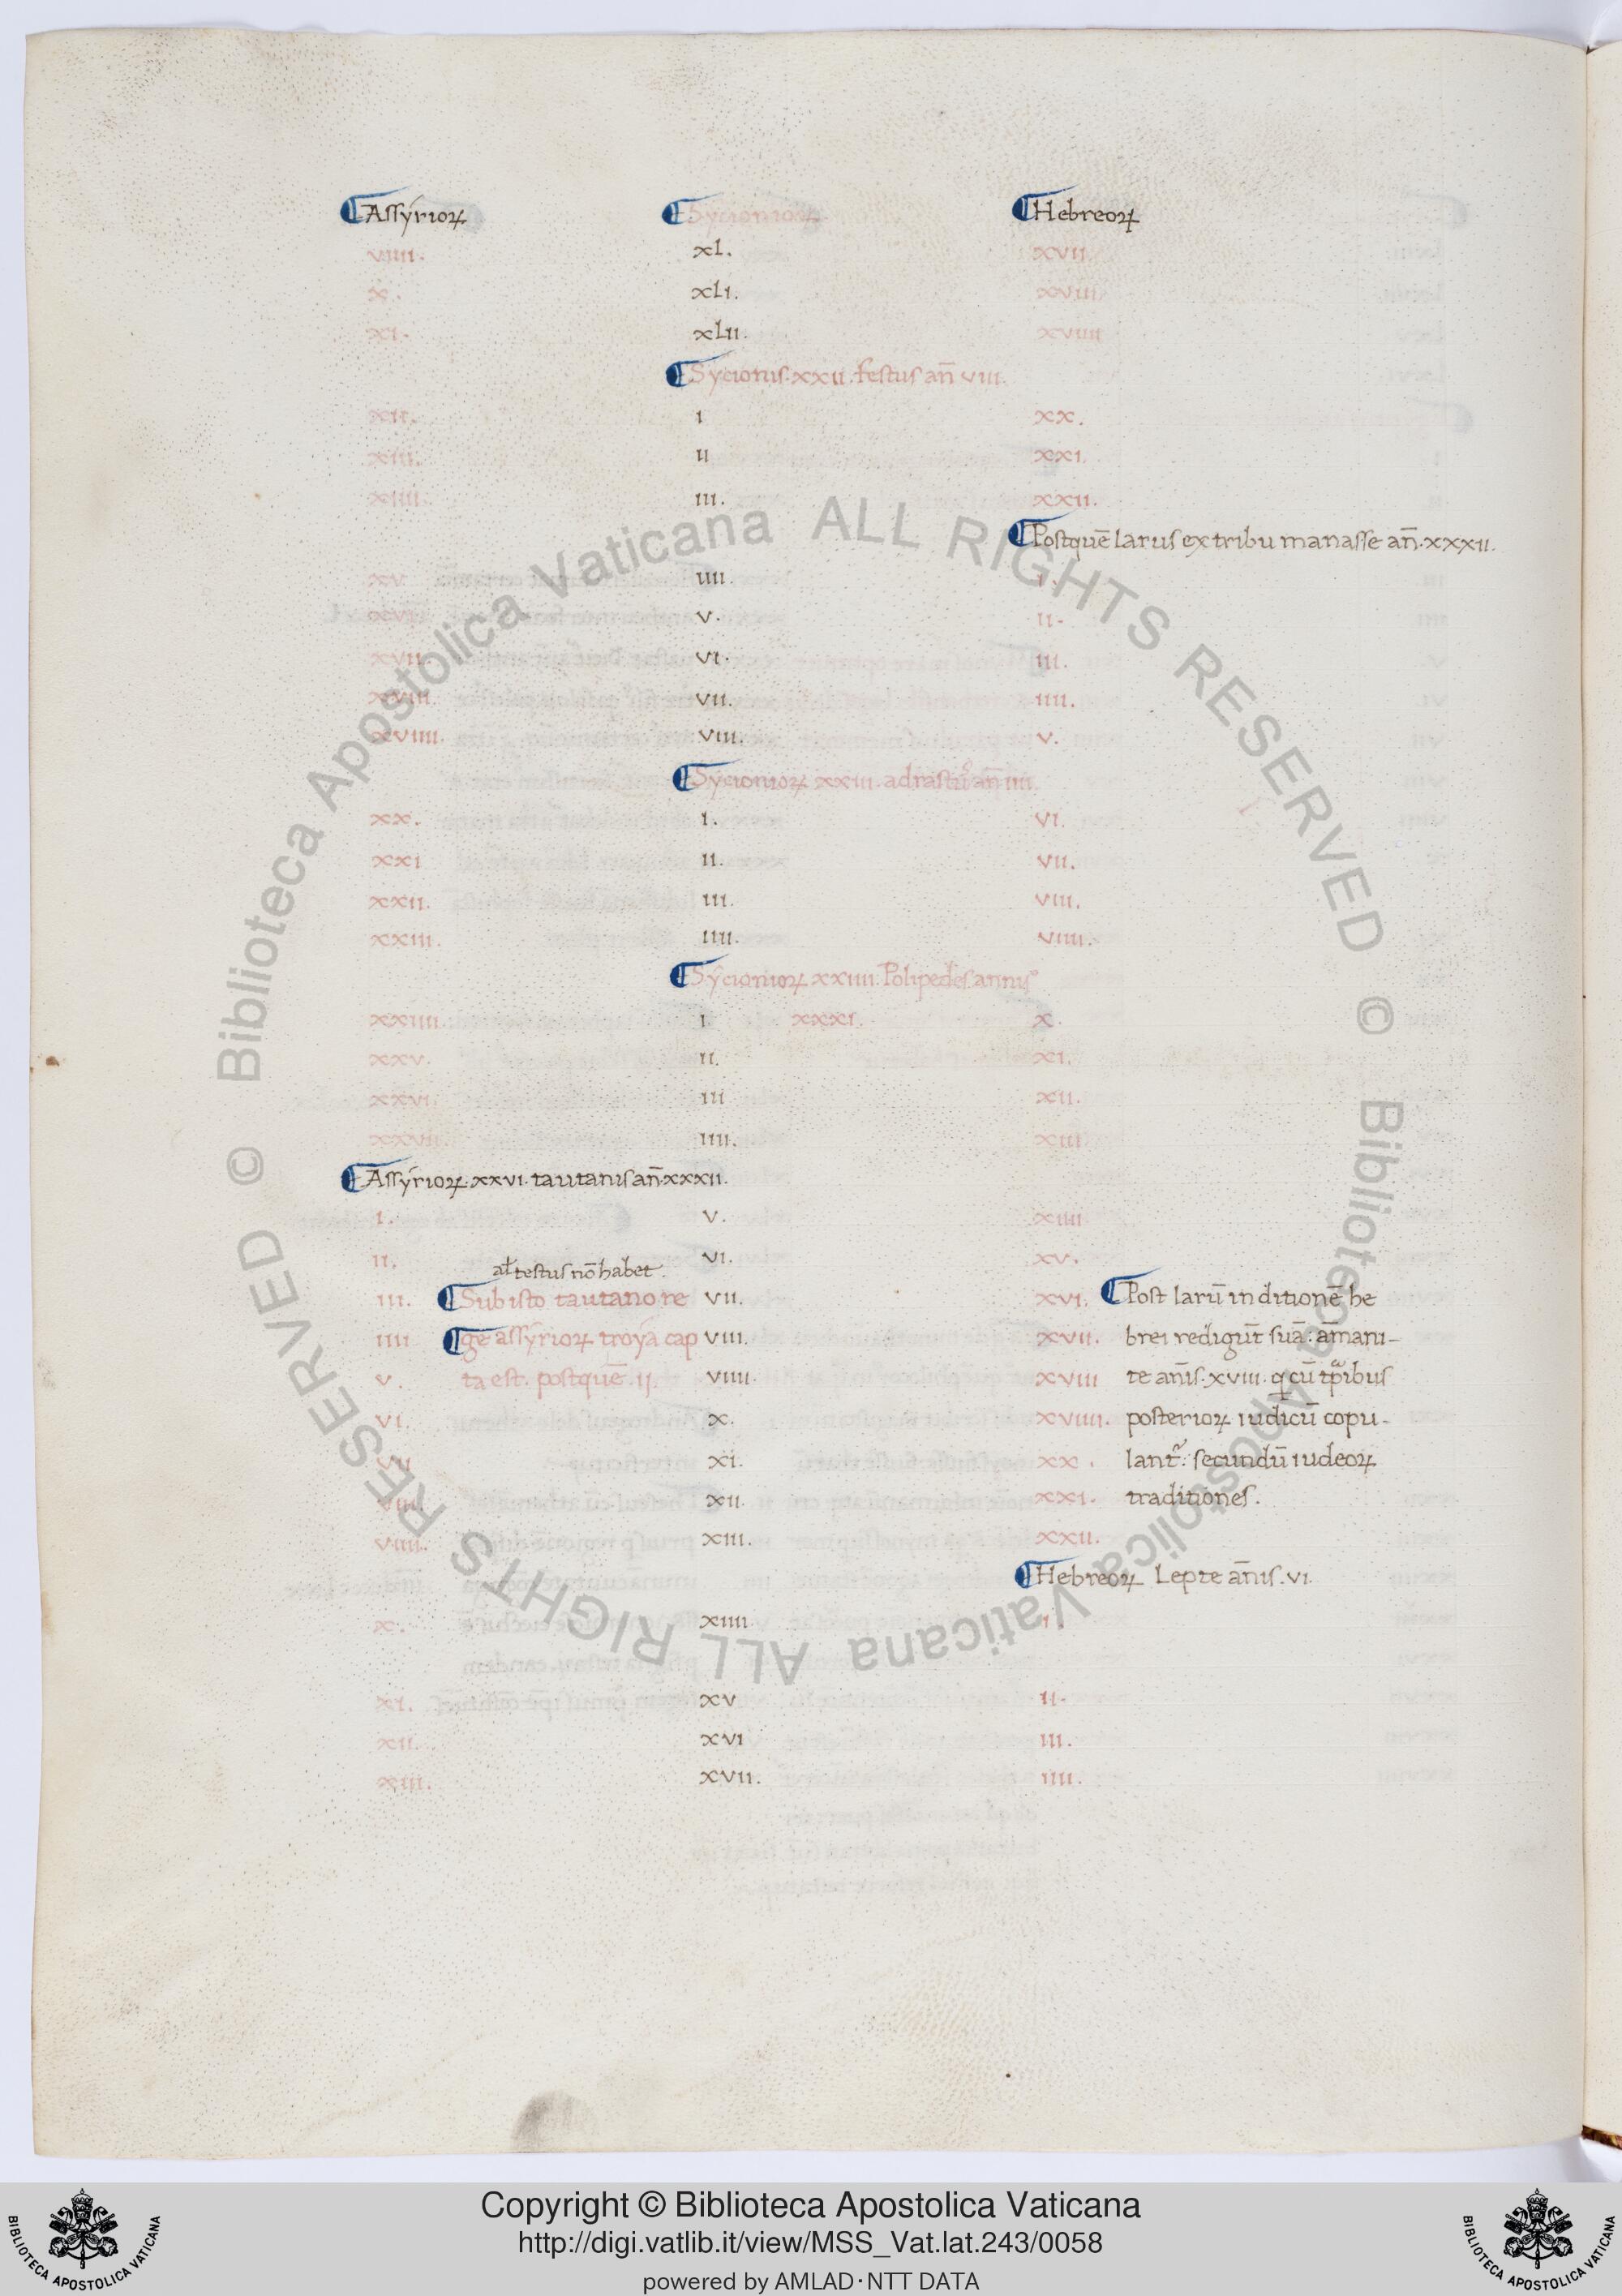 ¶Assyrioꝝ ¶Sycionioꝝ ¶Hebreoꝝ
viiii. xl. xvii.
x. xli. xviii.
xi. xlii. xviiii
¶Sycionis.xxii.festus an̄ viii.
xii. i xx.
xiii. ii xxi.
xiiii. iii. xxii.
¶Postquē larus ex tribu manasse an̄.xxxii.
xv iiii. i.
xvi v. ii.
xvii. vi. iii.
xviii. vii. iiii.
xviiii. viii. v.
¶Sycionioꝝ xxiii. adrastus an̄ iiii.
xx. i. vi.
xxi ii. vii.
xxii. iii. viii.
xxiii. iiii. viiii.
¶Sycionioꝝ xxiiii. Polipedes.annis
xxiiii. i xxxi. x.
xxv. ii. xi.
xxvi. iii xii.
xxvii iiii. xiii
¶Assyrioꝝ.xxvi.tautanis an̄.xxxii.
i. v. xiiii
ii. vi. xv.
al' testus nō habet.
iii. ¶Sub isto tautano re vii. xvi. ¶Post larū in ditionē he
iiii ¶ge assyrioꝝ troya cap viii. xvii. brei redigūt suā: āmani-
v. ta est. postquē.ii. viiii. xviii te an̄is.xviii. q̄ cū tp̄ribus
vi. x. xviiii. posterioꝝ iudicū copu-
vii xi. xx. lant᷑: secundū iudeoꝝ
viii. xii. xxi. traditiones.
viiii. xiii. xxii.
¶Hebreoꝝ Lepte an̄is.vi.
x. xiiii i.
xi. xv ii.
xii. xvi iii.
xiii. xvii. iiii.
© Biblioteca Apostolica Vaticana ALL RIGHTS RESERVED © Biblioteca Apostolica Vaticana ALL RIGHTS RESERVED
Copyright © Biblioteca Apostolica Vaticana
http://digi.vatlib.it/view/MSS_Vat.lat.243/0058
powered by AMLAD·NTT DATA
BIBLIOTECA APOSTOLICA VATICANA
BIBLIOTECA APOSTOLICA VATICANA